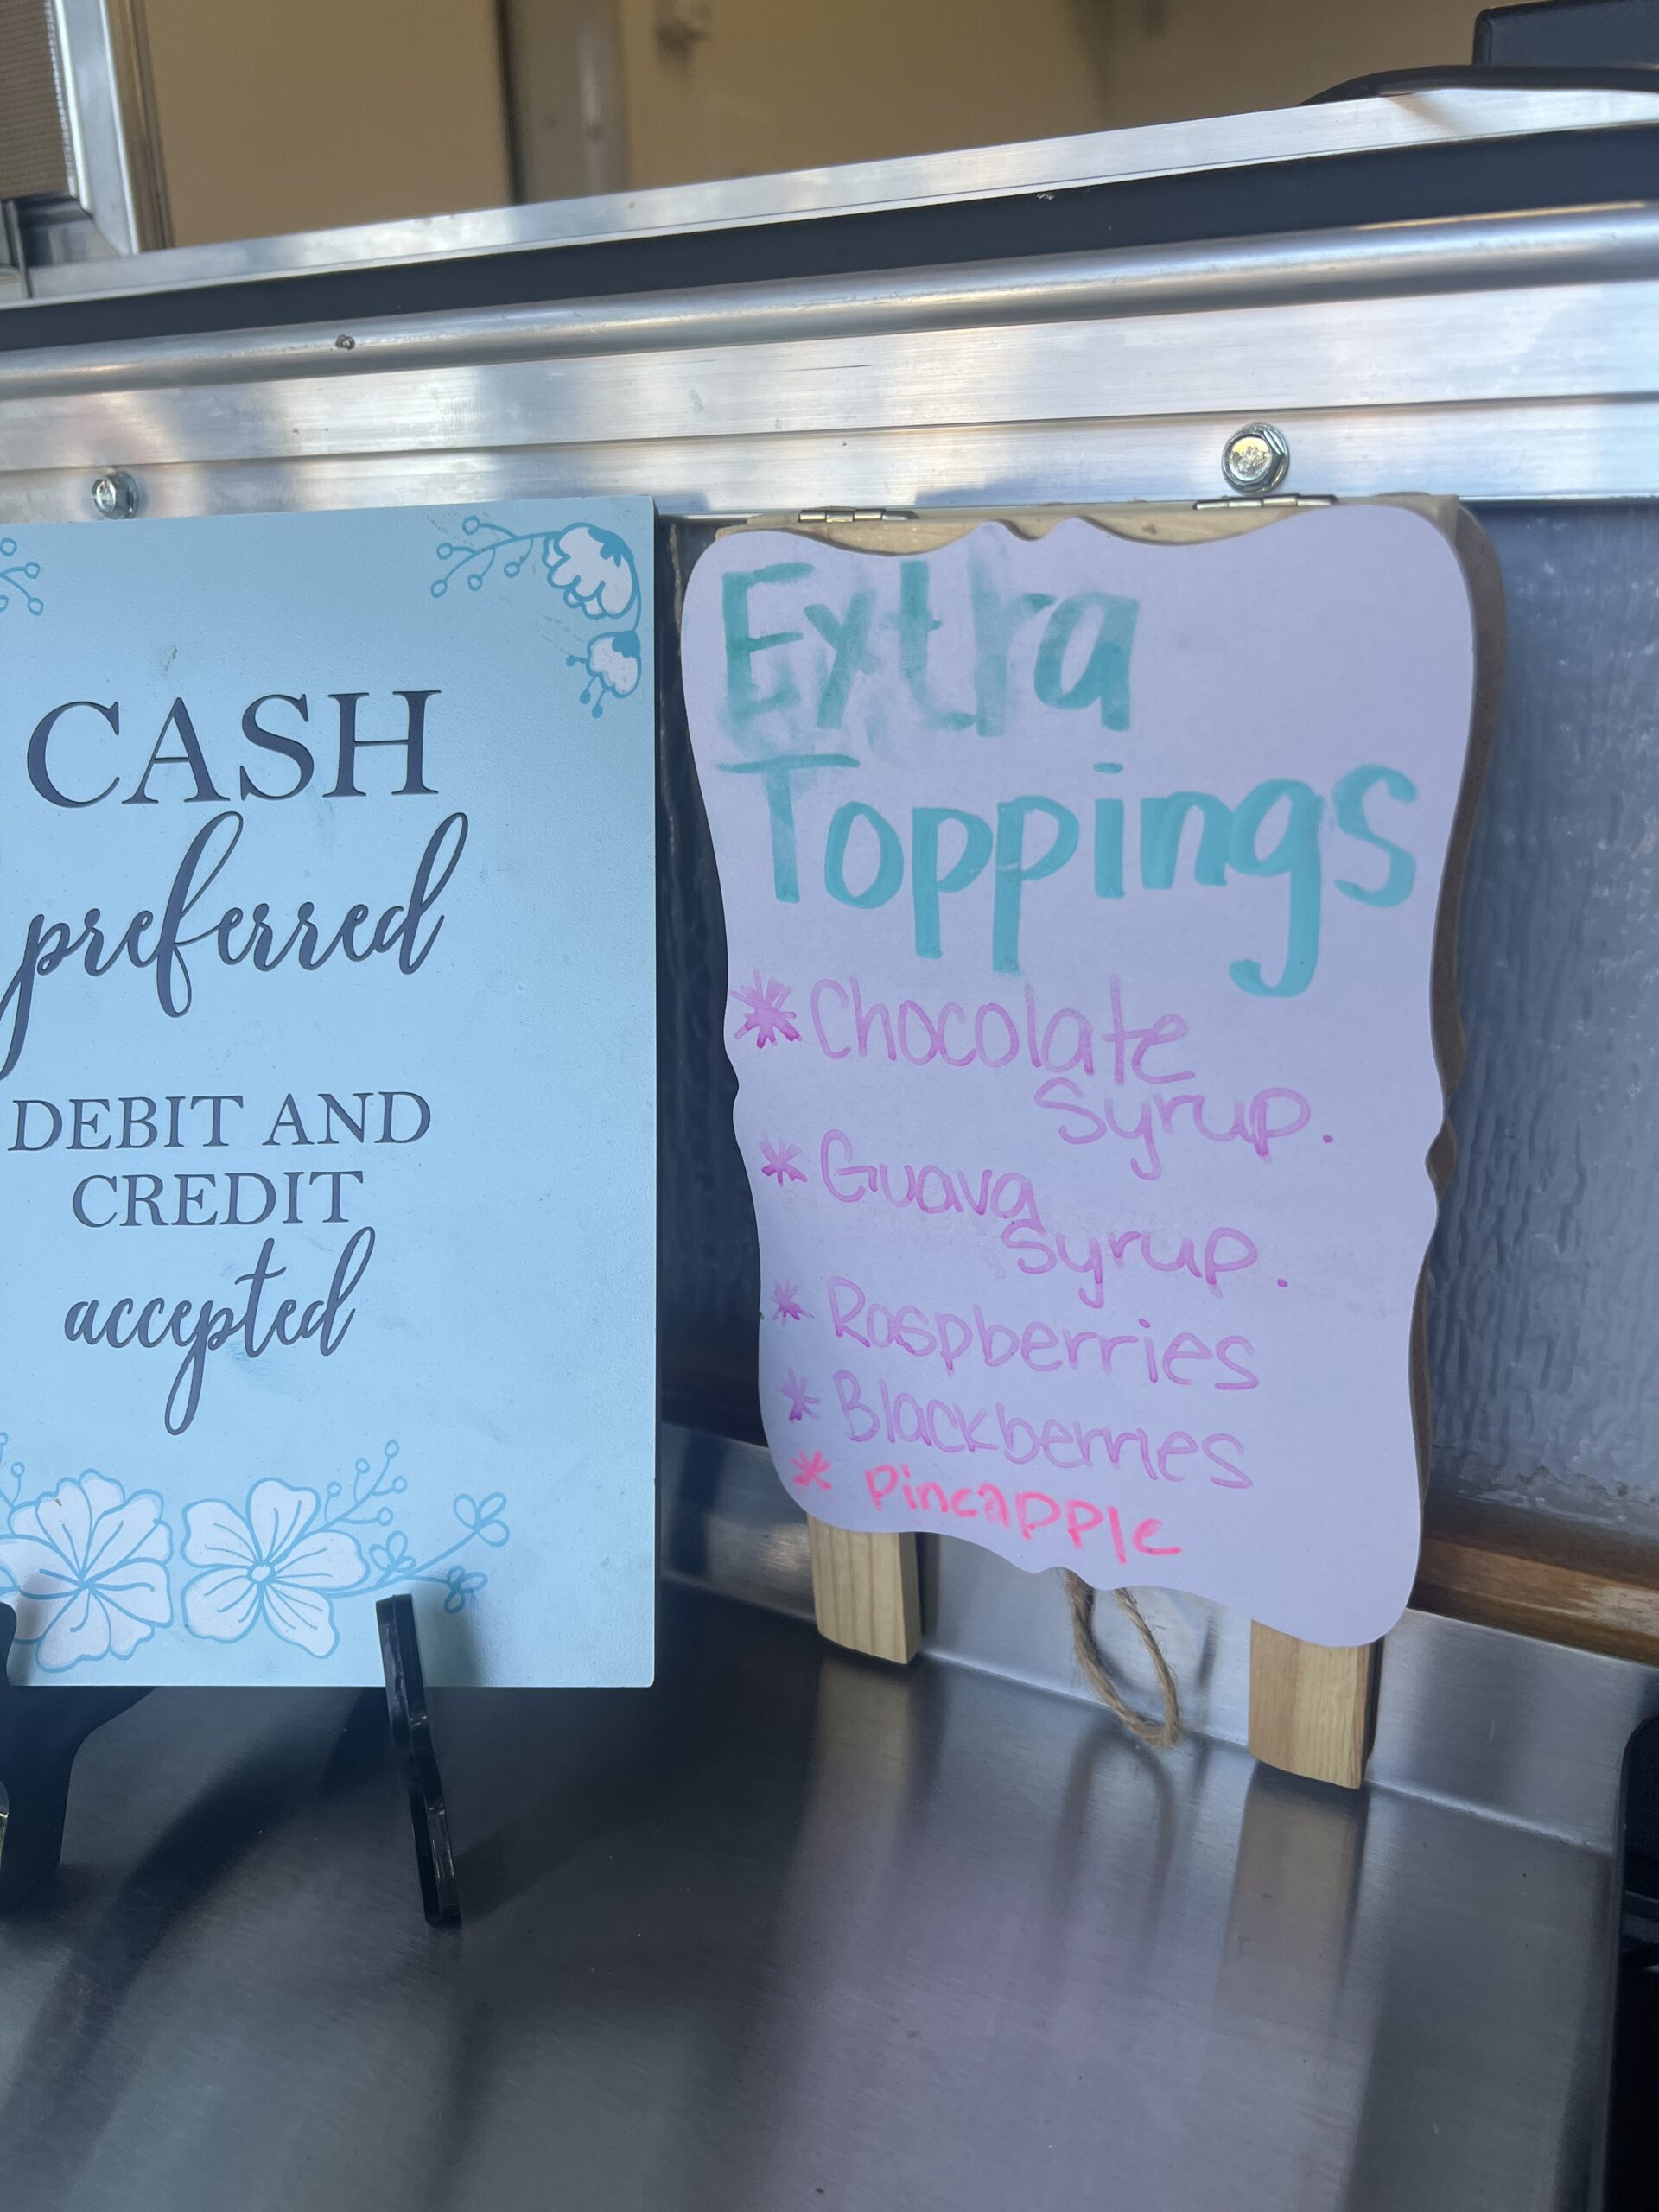 CASH
preferred
DEBIT AND
CREDIT
accepted
Extra
Toppings
* Chocolate
Syrup.
* Guava
Syrup.
* Raspberries
* Blackberries
* Pineapple